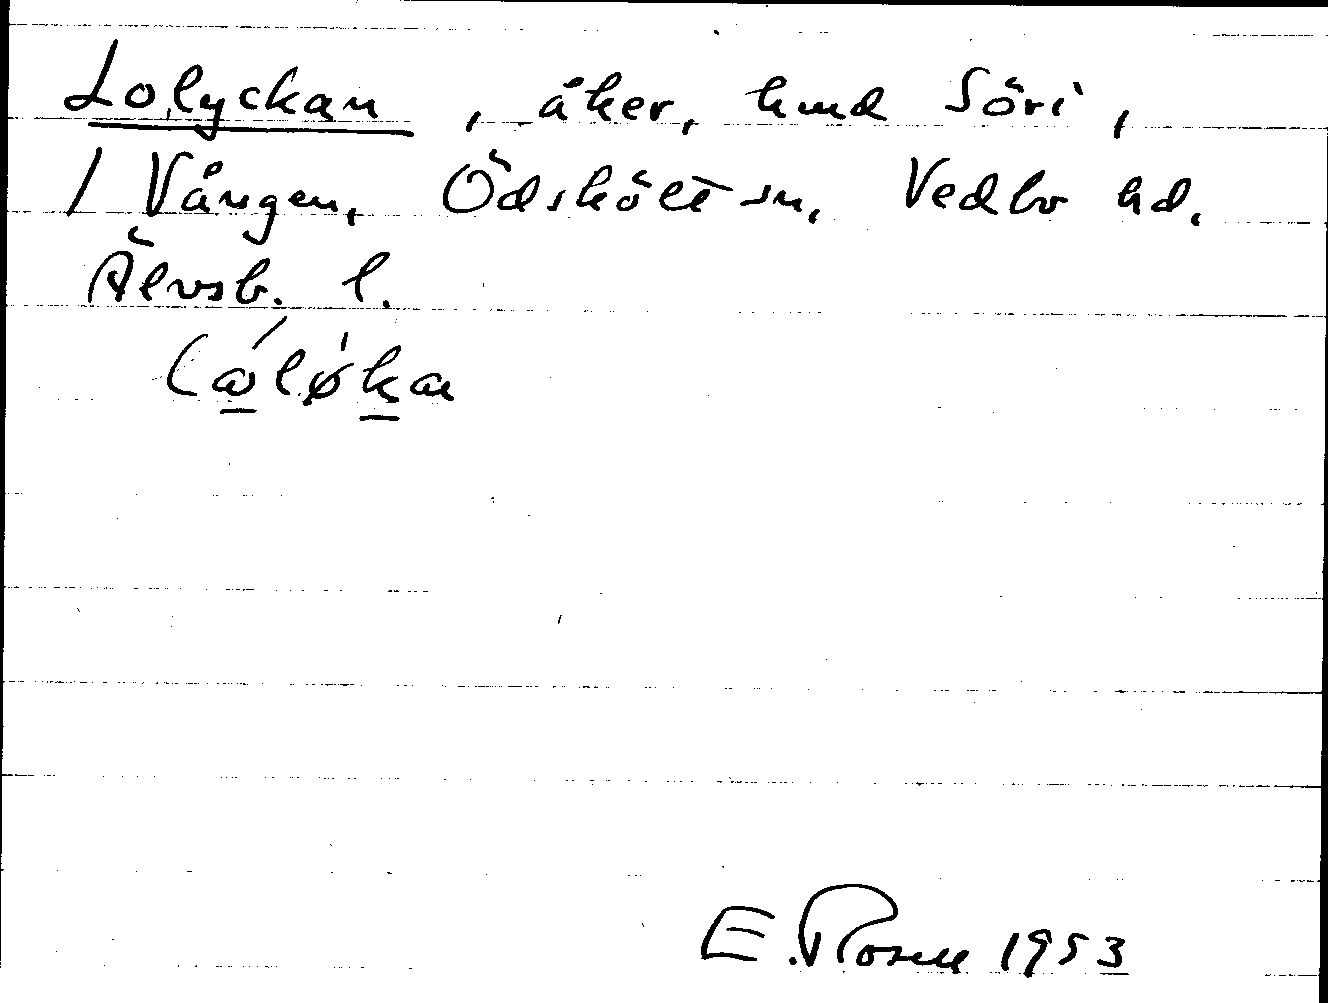 Lolyckan, åker, hmd Söri,
1 Vången, Ödskölts sn, Vedbo hd,
Älvsb. l.
E. Rosell 1953